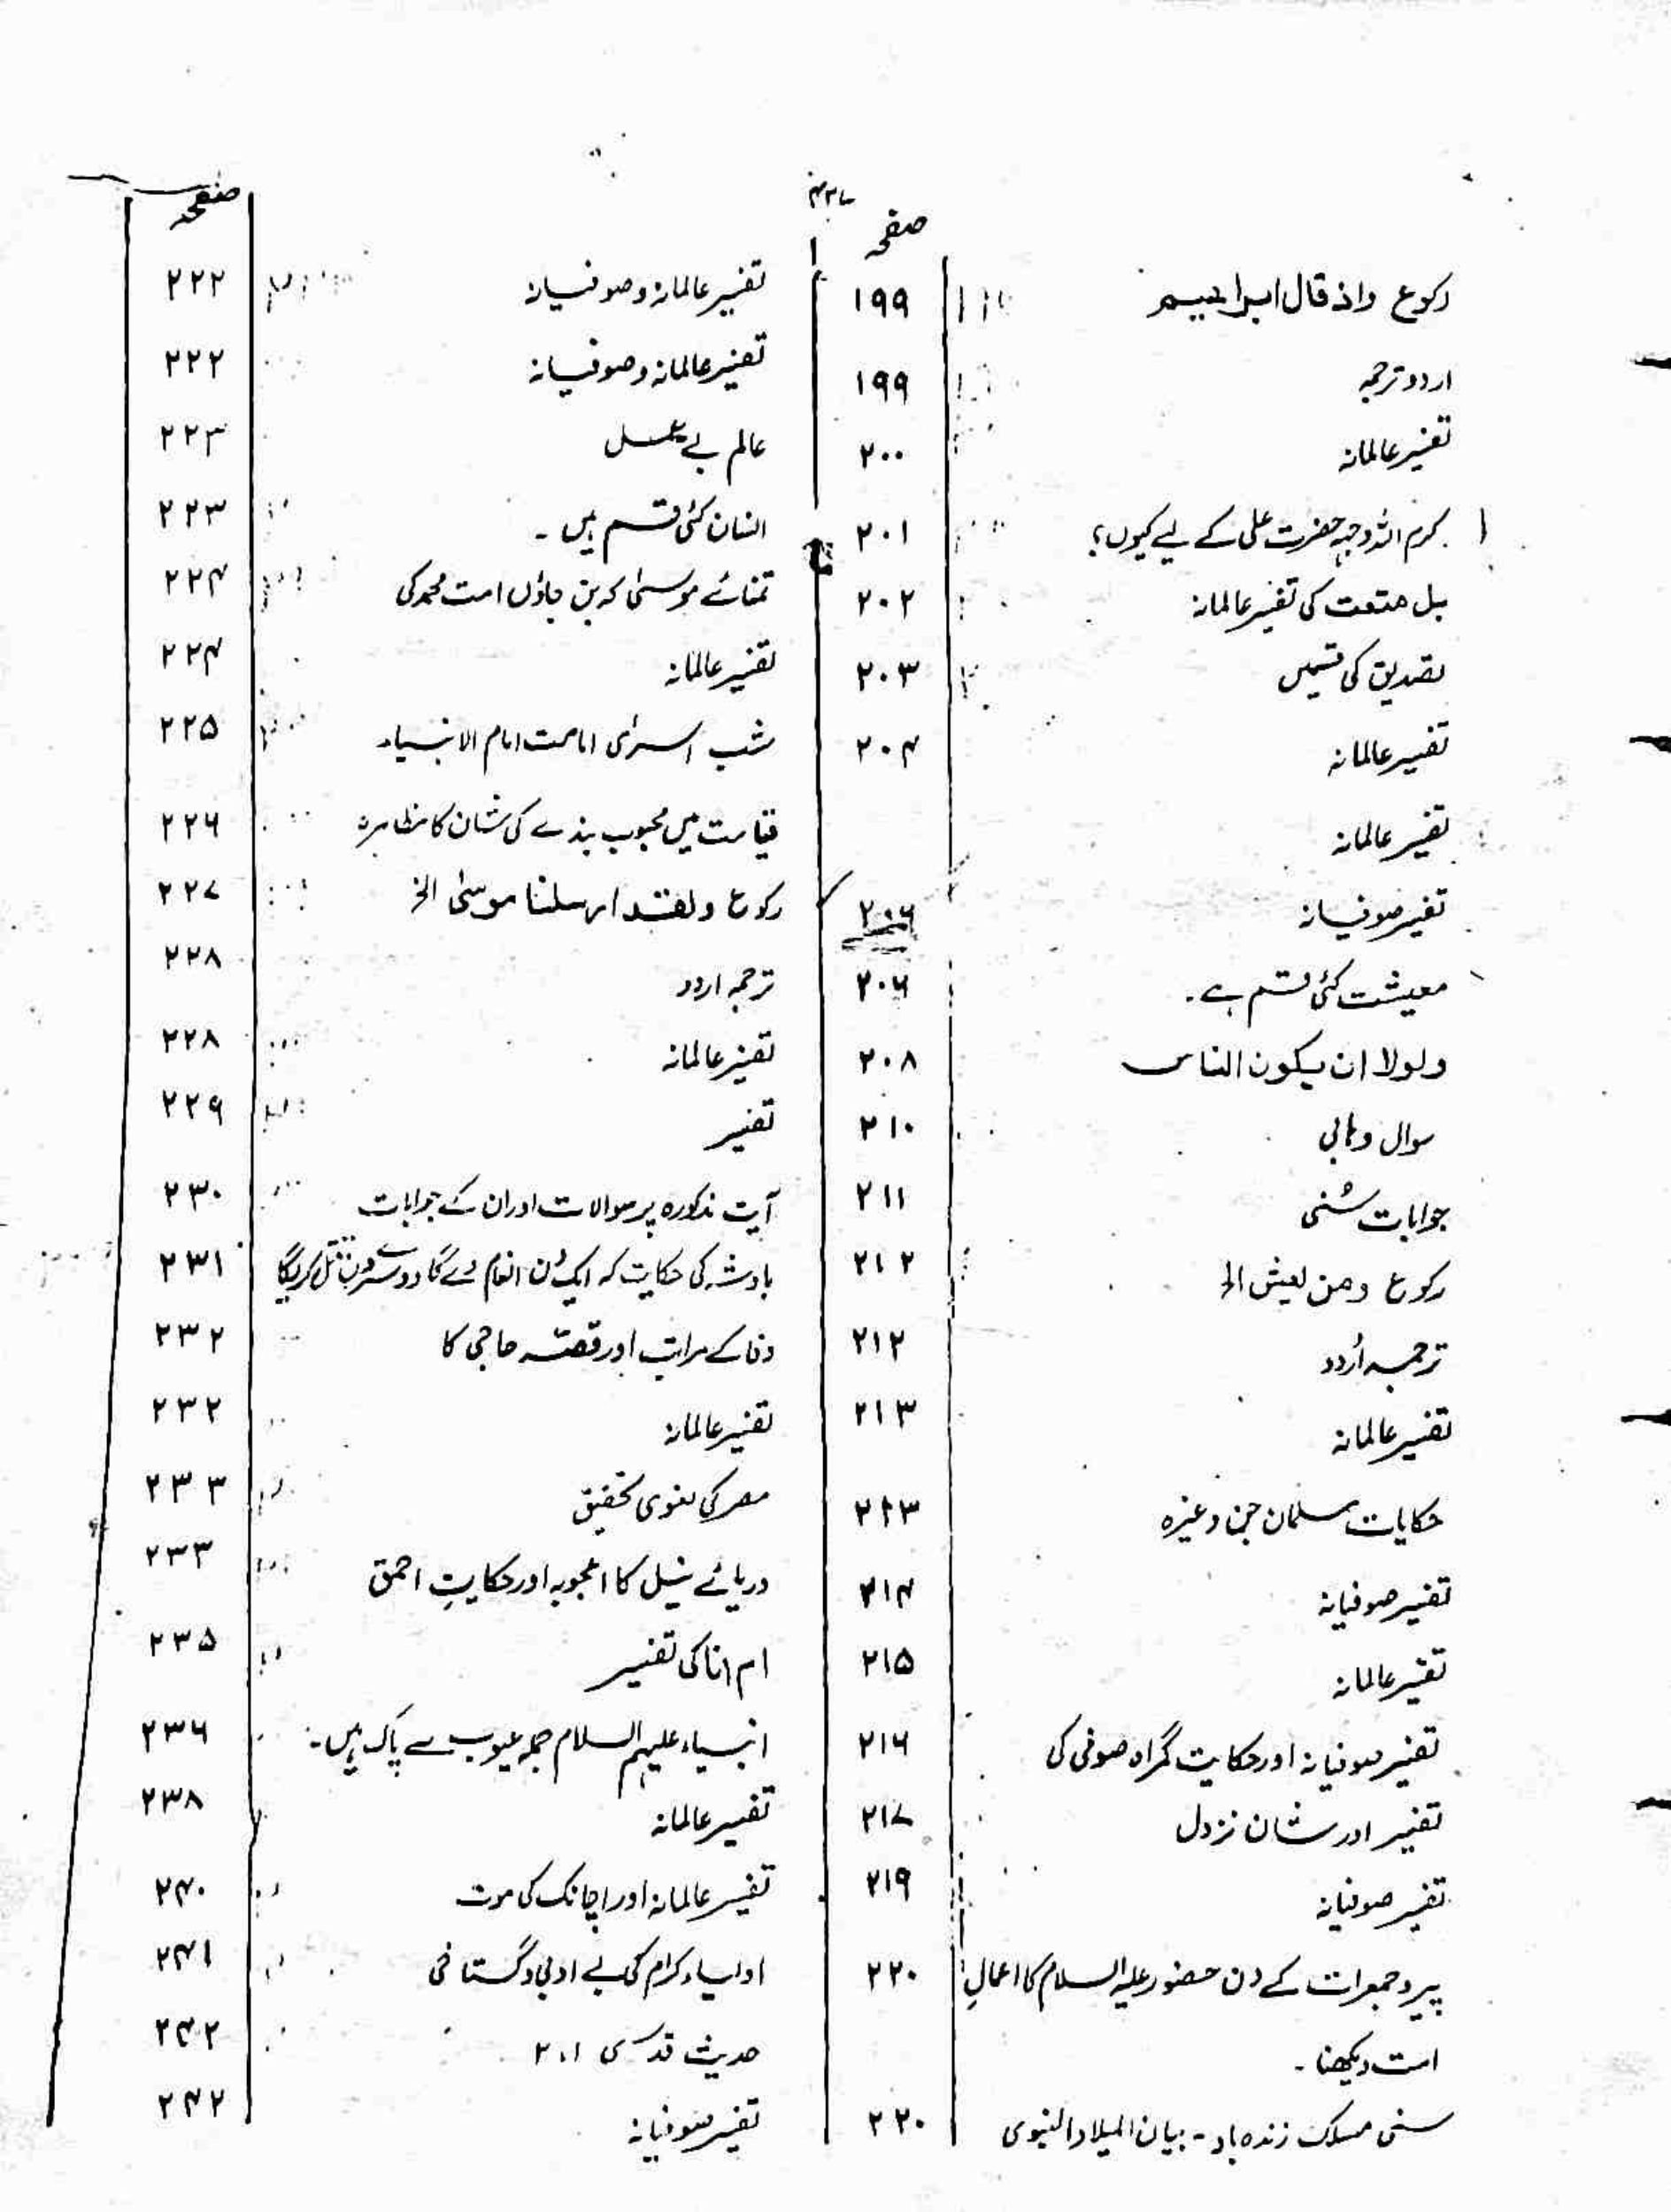 ۴۳۷
صفحہ
رکوع واذ قال ابراھیم ۱۹۹
اردو ترجمہ ۱۹۹
تفسیر عالمانہ ۲۰۰
کرم اللہ وجہہ حضرت علی کے لیے کیوں؟ ۲۰۱
بل متعت کی تفسیر عالمانہ ۲۰۲
تصدیق کی قسمیں ۲۰۳
تفسیر عالمانہ ۲۰۴
تفسیر عالمانہ
تفسیر صوفیانہ ۲۰۶
معیشت کئی قسم ہے۔ ۲۰۶
ولولا ان یکون الناس ۲۰۸
سوال وہابی ۲۱۰
جوابات سُنی ۲۱۱
رکوع ومن یعش الخ ۲۱۲
ترجمہ اُردو ۲۱۲
تفسیر عالمانہ ۲۱۳
حکایات مسلمان جن وغیرہ ۲۲۳
تفسیر صوفیانہ ۲۱۴
تفسیر عالمانہ ۲۱۵
تفسیر صوفیانہ اور حکایت گمراہ صوفی کی ۲۱۶
تفسیر اور شان نزول ۲۱۷
تفسیر صوفیانہ ۲۱۹
پیر و جمعرات کے دن حضور علیہ السلام کا اعمالِ ۲۲۰
امت دیکھنا۔
سنی مسلک زندہ باد۔ بیان المیلاد النبوی ۲۲۰
صفحہ
تفسیر عالمانہ و صوفیانہ ۲۲۲
تفسیر عالمانہ و صوفیانہ ۲۲۲
عالم بے عمل ۲۲۳
انسان کئی قسم ہیں۔ ۲۲۳
تمنائے موسیٰ کہ بن جاؤں امت محمد کی ۲۲۴
تفسیر عالمانہ ۲۲۴
شب اسریٰ امامت امام الانبیاء ۲۲۵
قیامت میں محبوب بندے کی شان کا مظاہرہ ۲۲۶
رکوع ولقد ارسلنا موسیٰ الخ ۲۲۷
ترجمہ اردو ۲۲۸
تفسیر عالمانہ ۲۲۸
تفسیر ۲۲۹
آیت مذکورہ پر سوالات اور ان کے جوابات ۲۳۰
بادشہ کی حکایت کہ ایک دن انعام دے گا دوسرے دن قتل کریگا ۲۳۱
وفا کے مراتب اور قصّہ حاجی کا ۲۳۲
تفسیر عالمانہ ۲۳۲
مصر کی لغوی تحقیق ۲۳۳
دریائے نیل کا اعجوبہ اور حکایتِ احمق ۲۳۳
ام انا کی تفسیر ۲۳۵
انبیاء علیہم السلام جملہ عیوب سے پاک ہیں۔ ۲۳۶
تفسیر عالمانہ ۲۳۸
تفسیر عالمانہ اور اچانک کی موت ۲۴۰
اولیاء کرام کی بے ادبی و گستاخی ۲۴۱
حدیث قدسی ۲،۱ ۲۴۲
تفسیر صوفیانہ ۲۴۲